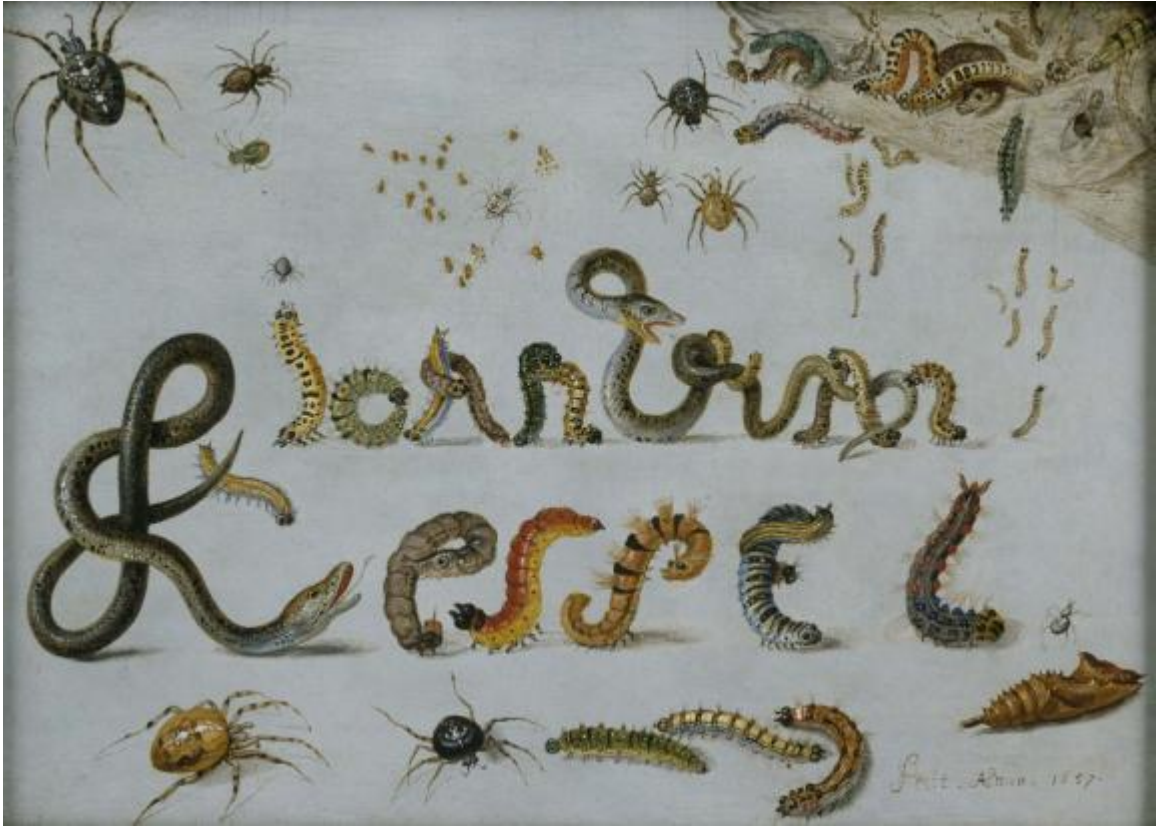 Joan van
Kessel
fecit . Anno . 1657 .